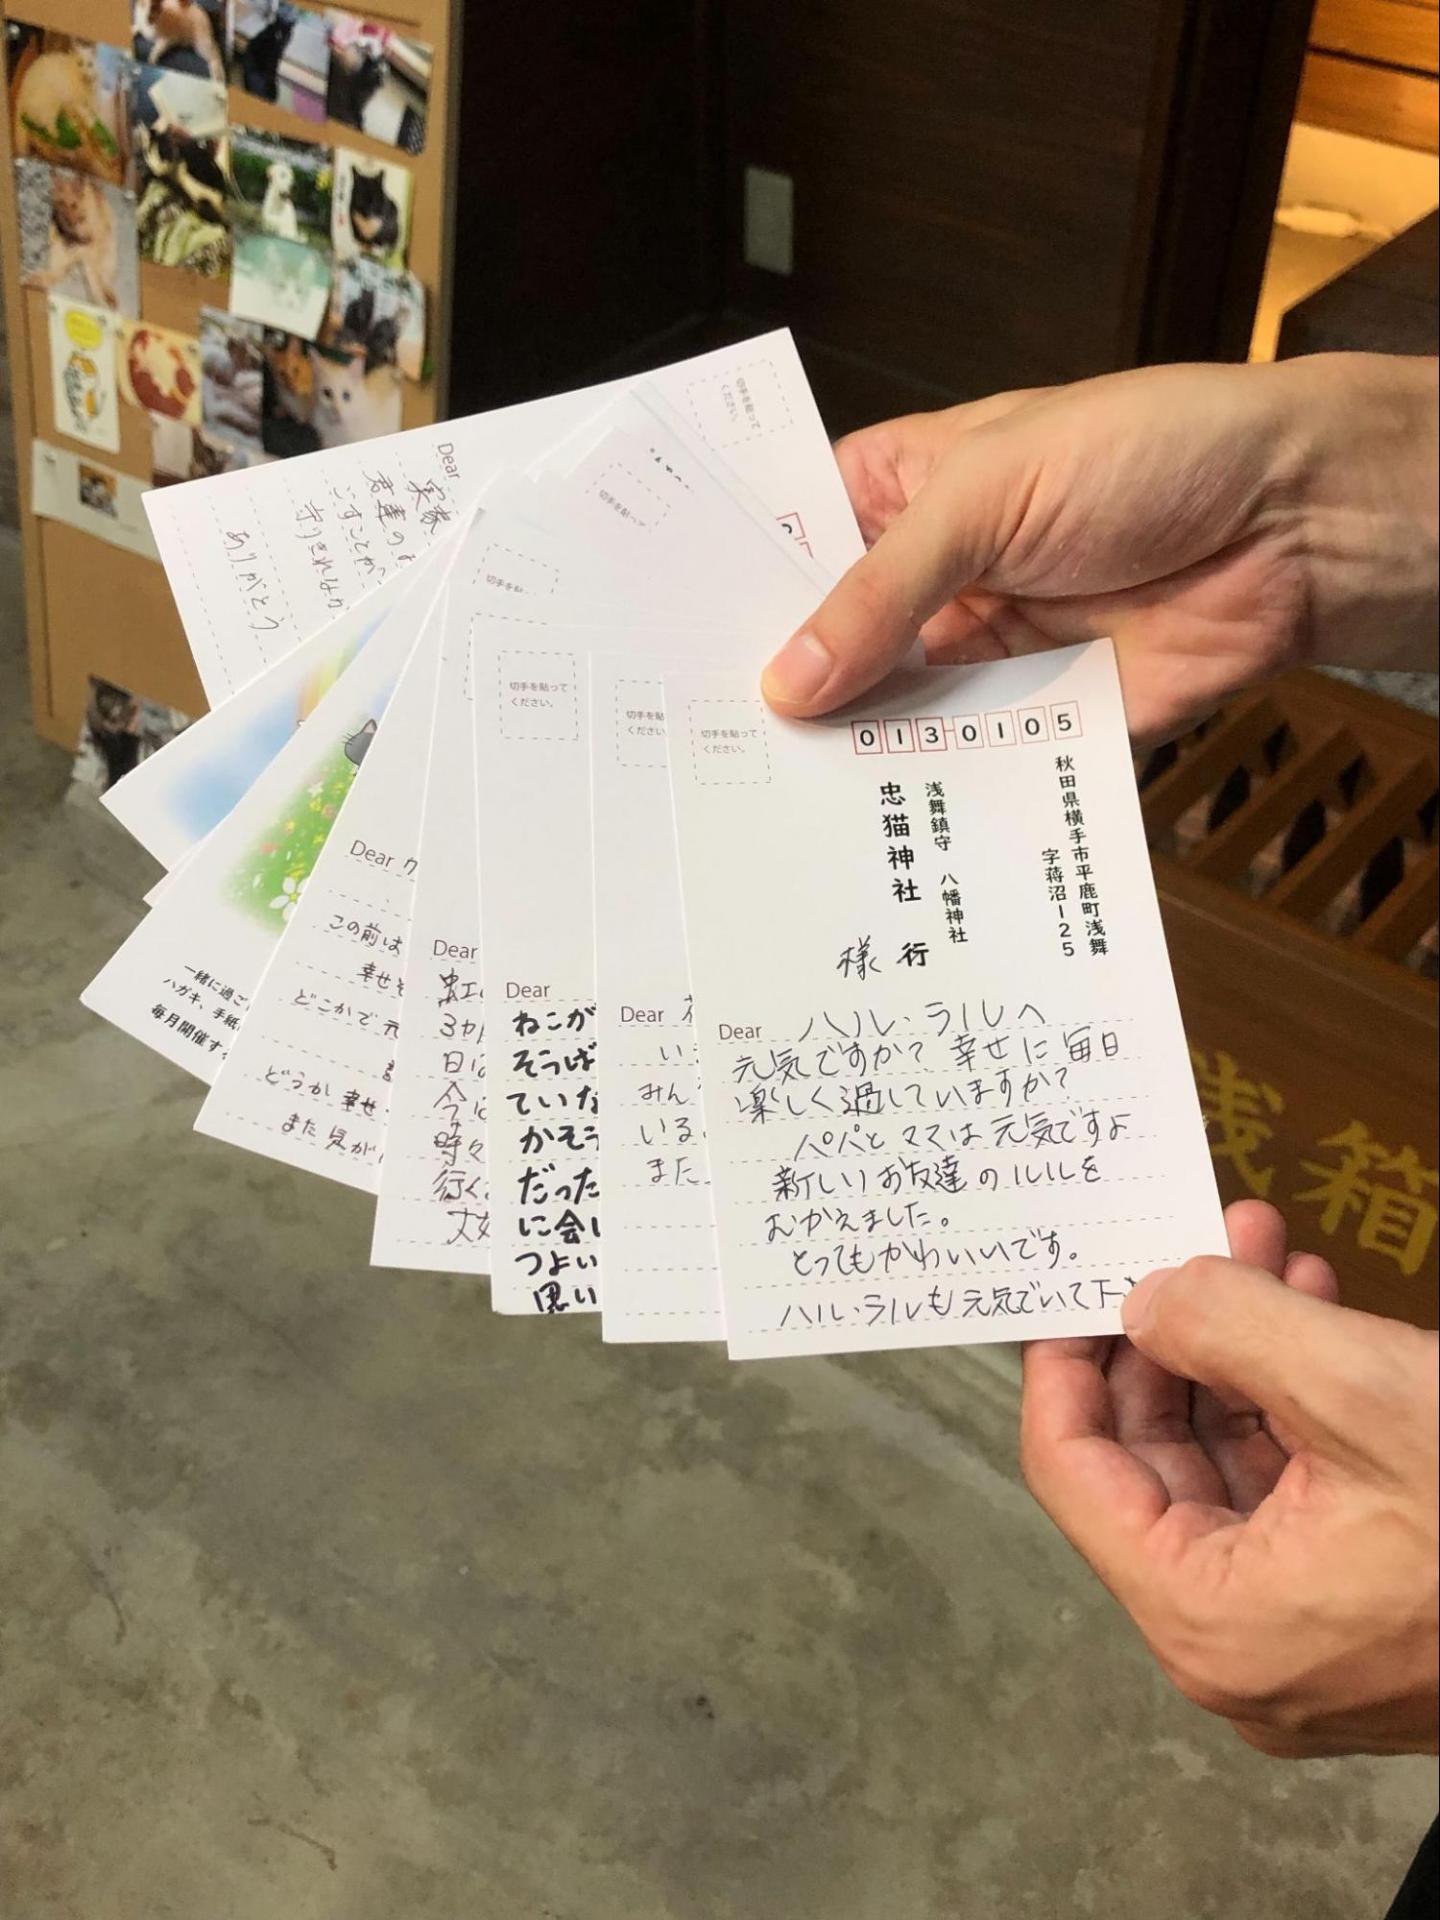 切手を貼って
ください。
0130105
秋田県横手市平鹿町浅舞
字蒋沼125
浅舞鎮守 八幡神社
忠猫神社 行
様
Dear ハル・ラルへ
元気ですか? 幸せに毎日
楽しく過していますか?
パパとママは元気ですよ
新しいお友達のルルを
むかえました。
とってもかわいいです。
ハル・ラルも元気でいて下
切手を貼
ください
Dear
い
みん
いる
また
切手を貼って
ください。
Dear
ねこが
そうば
ていな
かそう
だった
に会い
つよい
思い
Dear
虹
3か
日に
今に
時々
行く
切手を
Dear
この前は
幸せそ
どこかで元
どうか幸せ
また気が
一緒に過ご
ハガキ、手紙
毎月開催す
切手を貼っ
切手を貼って
ください。
Dear
君達の
ごすことが
守りきれな
ありがとう
銭箱